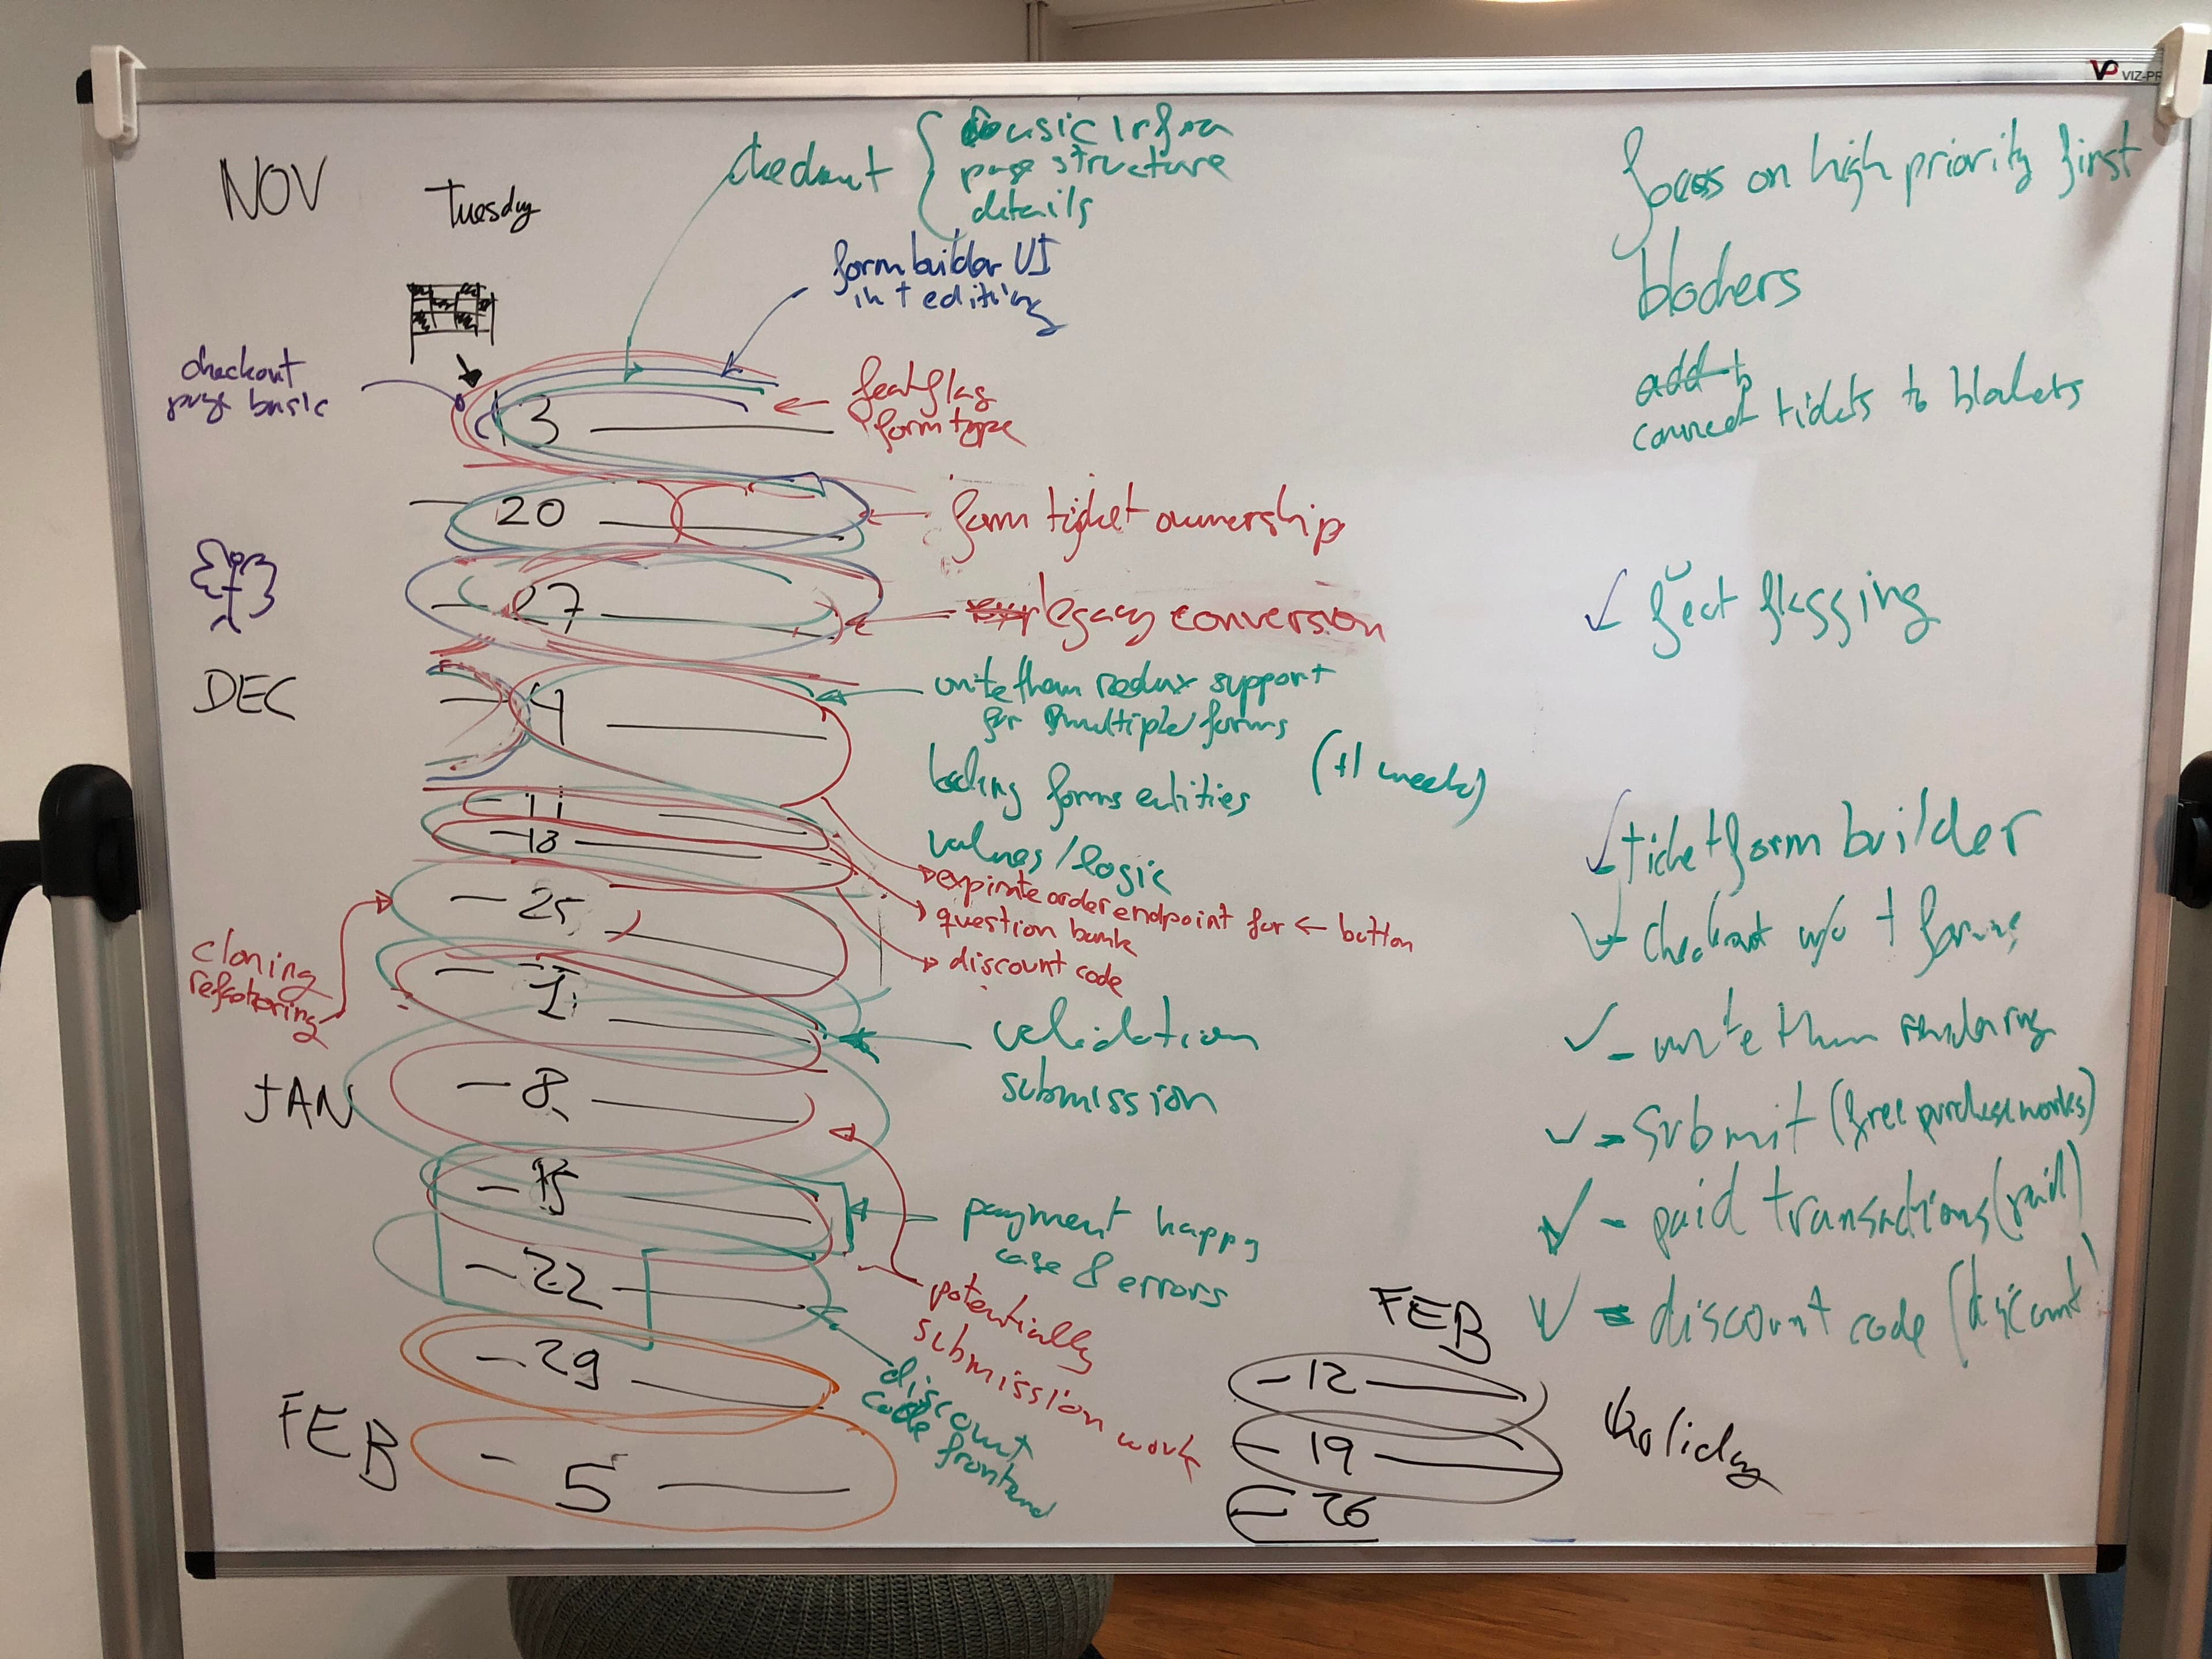 VIZ-PR
NOV
Tuesday
checkout
basic infra
page structure
details
form builder UI
init editing
checkout
page basic
13
feat flag
form type
20
form ticket ownership
27
legacy conversion
DEC
4
unite them redux support
for multiple forms
loading forms entities
(+1 week)
values/logic
- 11
- 18
expirate order endpoint for ← button
question bank
discount code
- 25
cloning
refactoring
- 1
validation
submission
JAN
- 8
- 15
payment happy
case & errors
- 22
potentially
submission work
discount
code frontend
- 29
FEB
- 5
focus on high priority first
blockers
add to
connect tickets to blockers
✓ feat flagging
✓ ticket form builder
✓ checkout w/o t forms
✓ - unite them rendering
✓ - submit (free purchase works)
✓ - paid transactions (paid)
✓ - discount code (discount)
FEB
- 12
- 19
- 26
Holiday